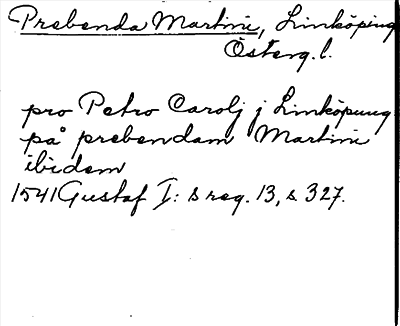 Prebenda Martini, Linköping
Österg. l.
pro Petro Carolj j Linköpung
på prebendam Martini
ibidem
1541 Gustaf I: s reg. 13, s 327.